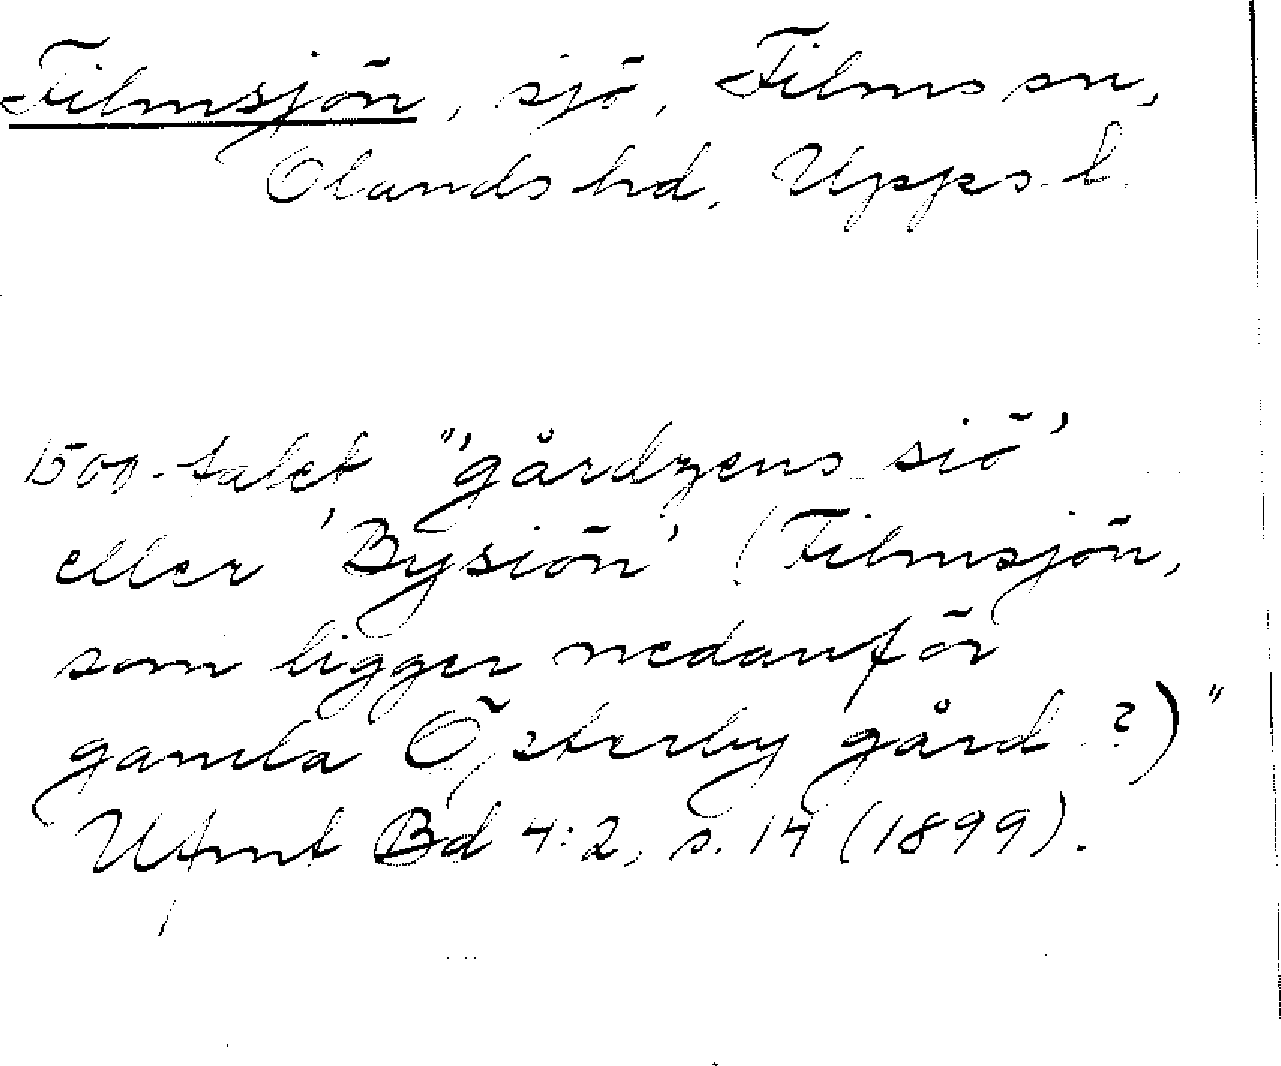 Filmsjön, sjö, Films sn,
Olands hd, Upps. l.
1500-talet "'gårdzens siö'
eller 'Bysiön' (Filmsjön,
som ligger nedanför
gamla Österby gård ?)"
Ufmt Bd 4:2, s. 14 (1899).